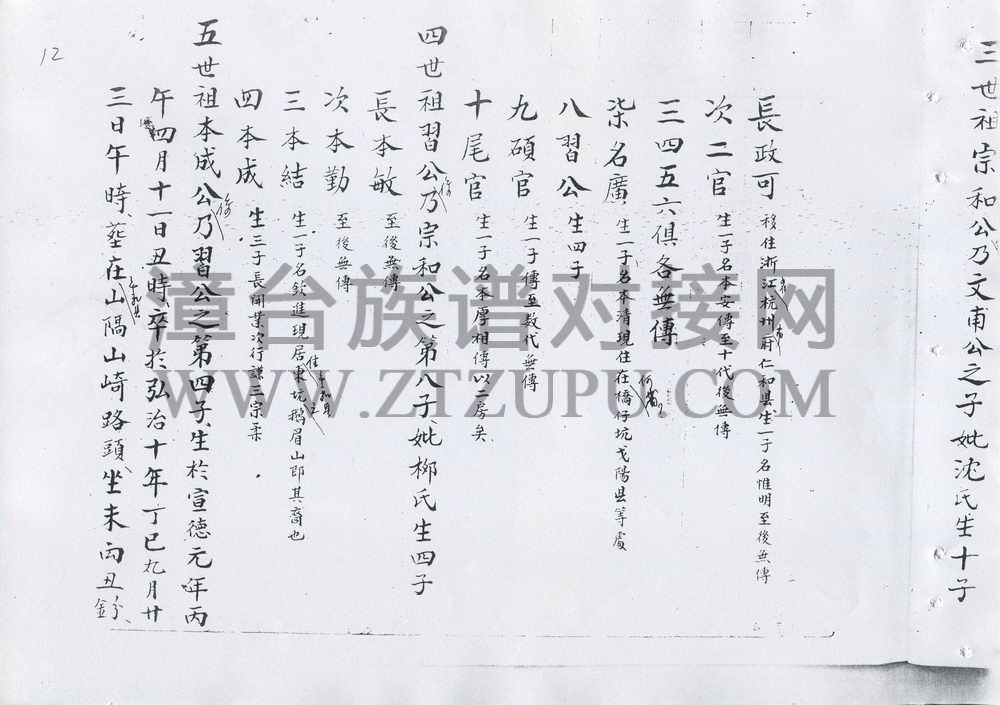 三世祖宗和公乃文甫公之子妣沈氏生十子
長政可 移住浙江杭州府仁和县生一子名惟明至後無傳
次二官 生一子名本安傳至十代後無傳
三四五六俱各無傳
柒名廣 生一子名本清現住在橋仔坑弋陽县等處
八習公 生四子
九碩官 生一子傳至数代無傳
十尾官 生一子名本厚相傳以二房矣
四世祖習公乃宗和公之第八子妣柳氏生四子
長本敏 至後無傳
次本勤 至後無傳
三本結 生一子名欽進現居東坑鹅眉山即其裔也
四本成 生三子長開業次行謙三宗柔
五世祖本成公乃習公之第四子生於宣德元年丙
午四月十一日丑時卒於弘治十年丁巳九月廿
三日午時塟在山隔山崎路頭坐未向丑分金
12
漳台族谱对接网
WWW.ZTZUPU.COM